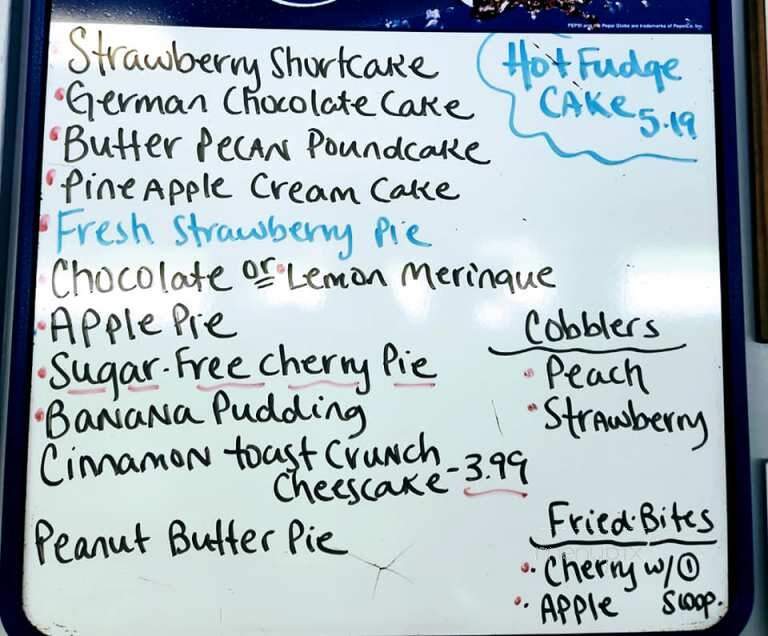 PEPSI and the Pepsi Globe are trademarks of PepsiCo, Inc.
Strawberry Shortcake
German Chocolate Cake
Butter Pecan Poundcake
Pineapple Cream Cake
Fresh Strawberry Pie
Chocolate or Lemon Meringue
Apple Pie
Sugar-Free Cherry Pie
Banana Pudding
Cinnamon Toast Crunch
Cheescake - 3.99
Peanut Butter Pie
Hot Fudge
Cake 5.19
Cobblers
Peach
Strawberry
Fried Bites
Cherry w/ 1
Apple Scoop.